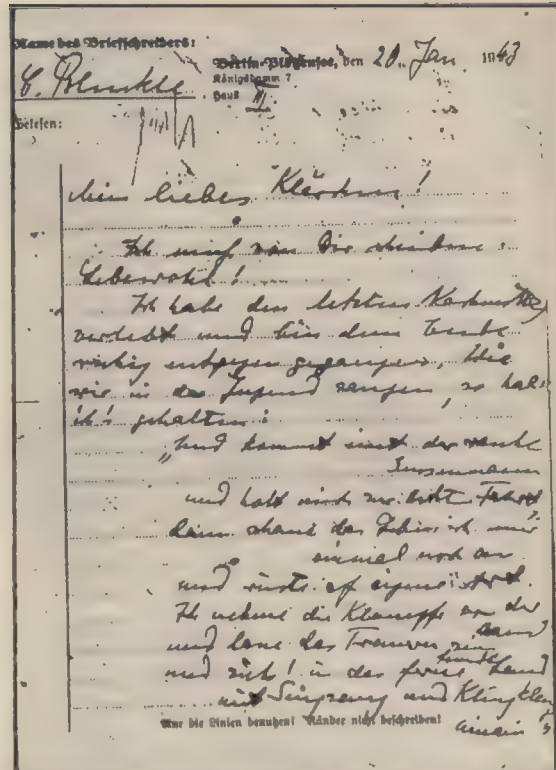 Name des Briefschreibers:
Berlin-Plötzensee, den 20. Jan. 1943
C. Blenkle
Königsdamm 7
Haus III
Gelesen:
Mein liebes Klärchen!
Ich muß von Dir scheiden.
Lebewohl!
Ich habe den letzten
verlebt und bin dem Ende
ruhig entgegen gegangen. Wie
wir in der Jugend sangen, so hab
ich's gehalten:
"Und kommt einst der
Sensenmann
und holt mich zur letzten Fahrt
dann schaue das Leben ich mir
einmal noch an
und auf eigene Art.
Ich nehme die Klampfe von der
Wand
und lasse das Trauern sein
und zieh! in das freie Land
mit Singsang und Klingklang
hinein"
Nur die Linien benutzen! Ränder nicht beschreiben!